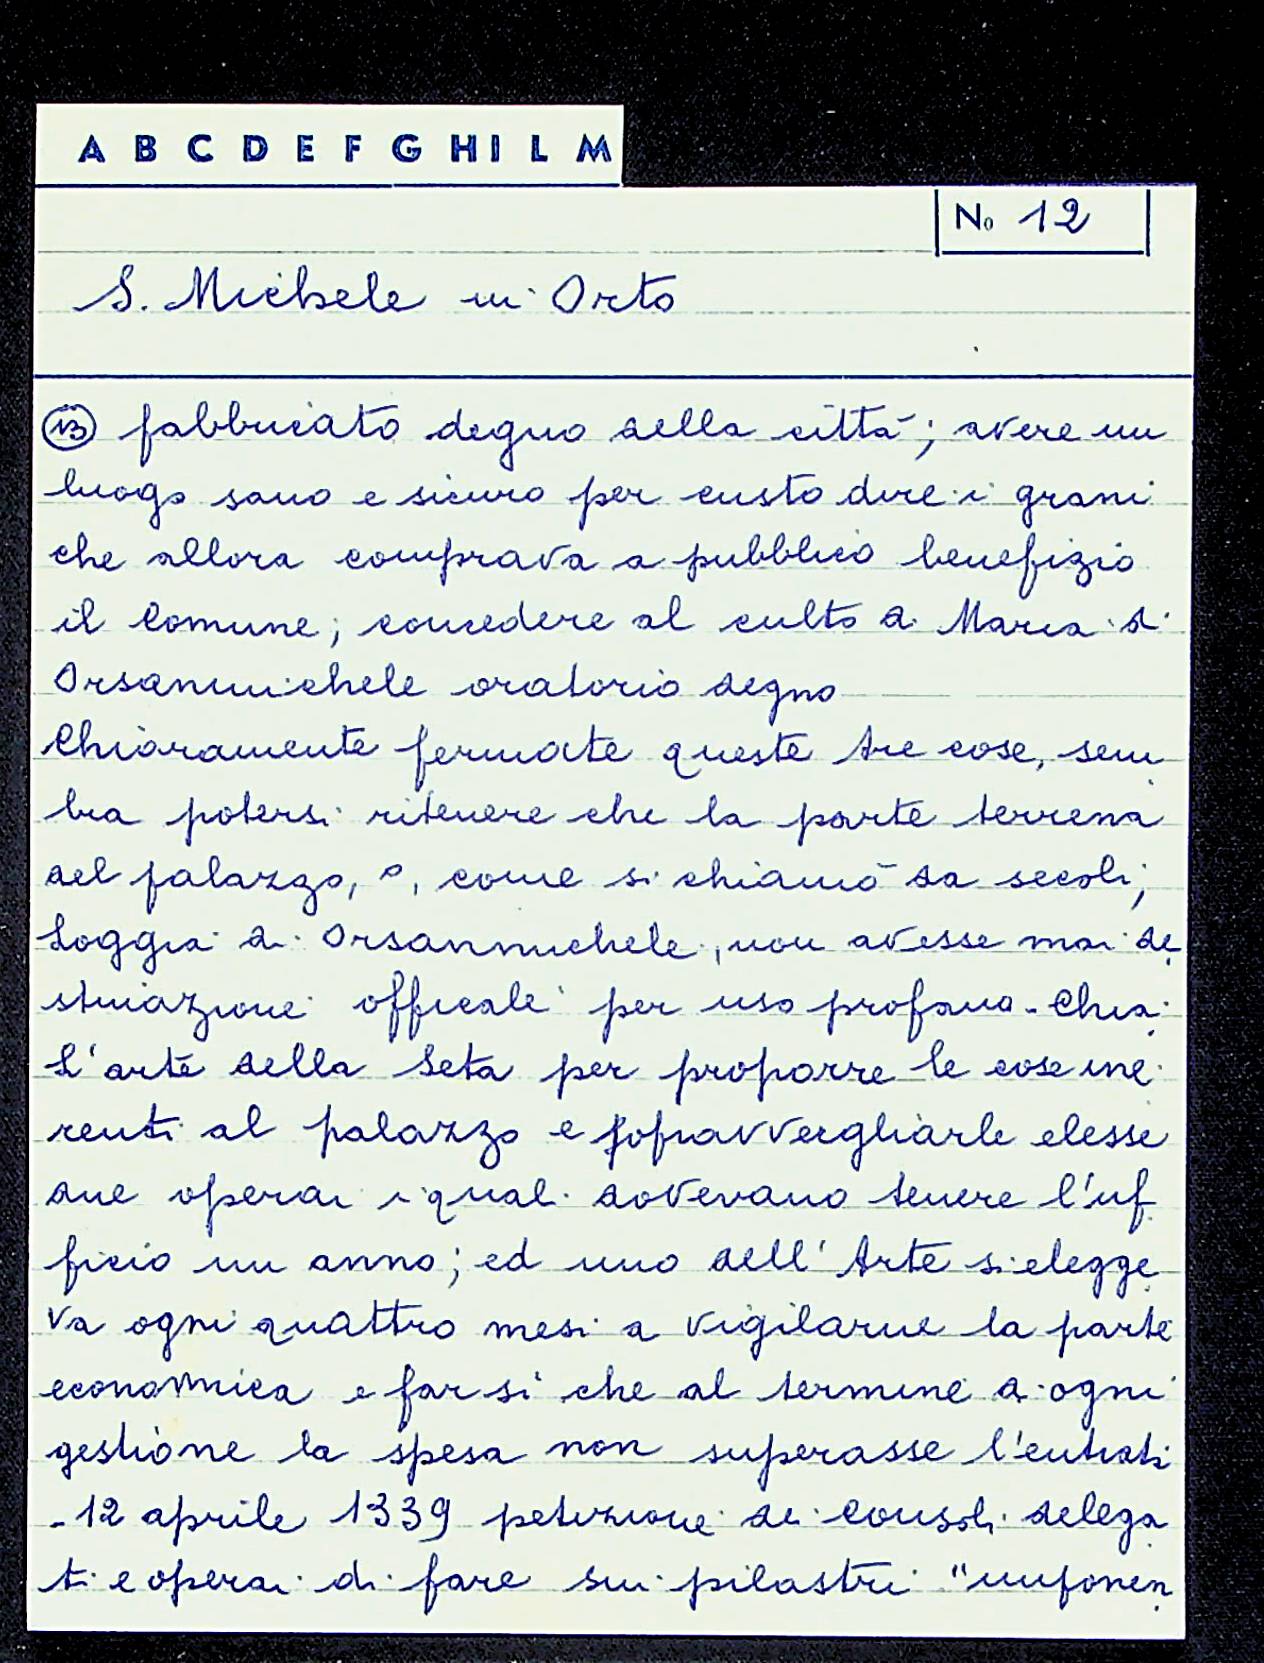 A B C D E F G H I L M
No 12
S. Michele in Orto
13 fabbricato degno della città; avere un
luogo sano e sicuro per custodire i grani
che allora comprava a pubblico benefizio
il Comune; concedere al culto di Maria di
Orsanmichele oratorio degno
Chiaramente fermate queste tre cose, sem
bra potersi ritenere che la parte terrena
del palazzo, o, come si chiamò da secoli,
Loggia di Orsannichele, non avesse mai de
stinazione officale per uso profano - Chia
L'arte della Seta per proporre le cose ine
renti al palazzo e sopravvergliarle elesse
due operai i quali dovevano tenere l'uf
ficio un anno; ed uno dell'Arte si elegge
va ogni quattro mesi a vigilarne la parte
economica e far si che al termine di ogni
gestione la spesa non superasse l'entrati
- 12 aprile 1339 petizione dei Consoli delega
ti e operai di fare sui pilastri "